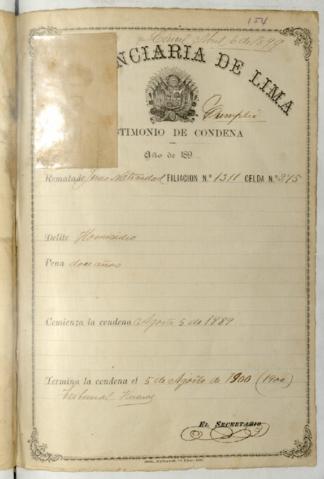 154
NCIARIA DE LIMA
Cumplió
STIMONIO DE CONDENA
Año de 189
Rematado FILIACION N.º 1311 CELDA N.º 245
Delito Homicidio
Pena doce años
Comienza la condena Agosto 5 de 1889
Termina la condena el 5 de Agosto de 1900 (1900)
Tribunal
EL SECRETARIO